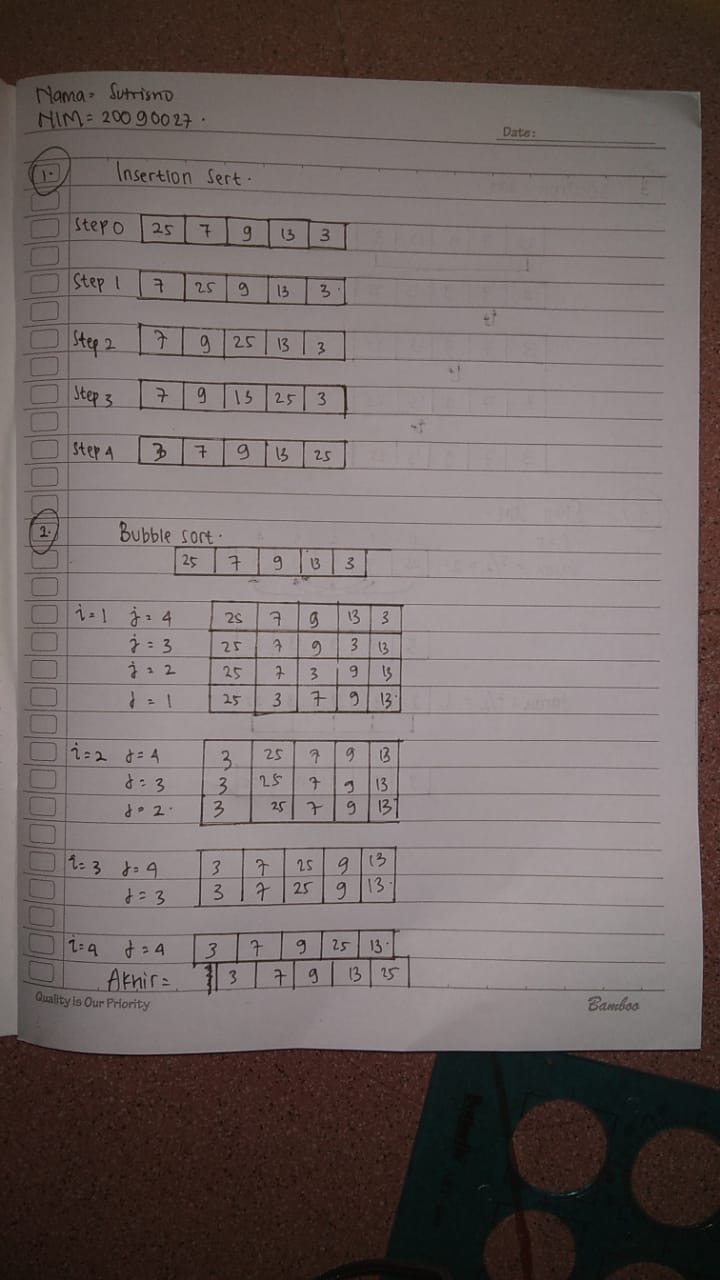 Nama = Sutrisno
NIM = 20090027.
Date:
1. Insertion Sert.
Step 0 25 7 9 13 3
Step 1 7 25 9 13 3
Step 2 7 9 25 13 3
Step 3 7 9 13 25 3
Step 4 3 7 9 13 25
2. Bubble sort.
25 7 9 13 3
i=1 j=4 25 7 9 13 3
j=3 25 7 9 3 13
j=2 25 7 3 9 13
j=1 25 3 7 9 13
i=2 j=4 3 25 7 9 13
j=3 3 25 7 9 13
j=2 3 25 7 9 13
i=3 j=4 3 7 25 9 13
j=3 3 7 25 9 13
i=4 j=4 3 7 9 25 13
Akhir = 3 7 9 13 25
Quality is Our Priority
Bamboo